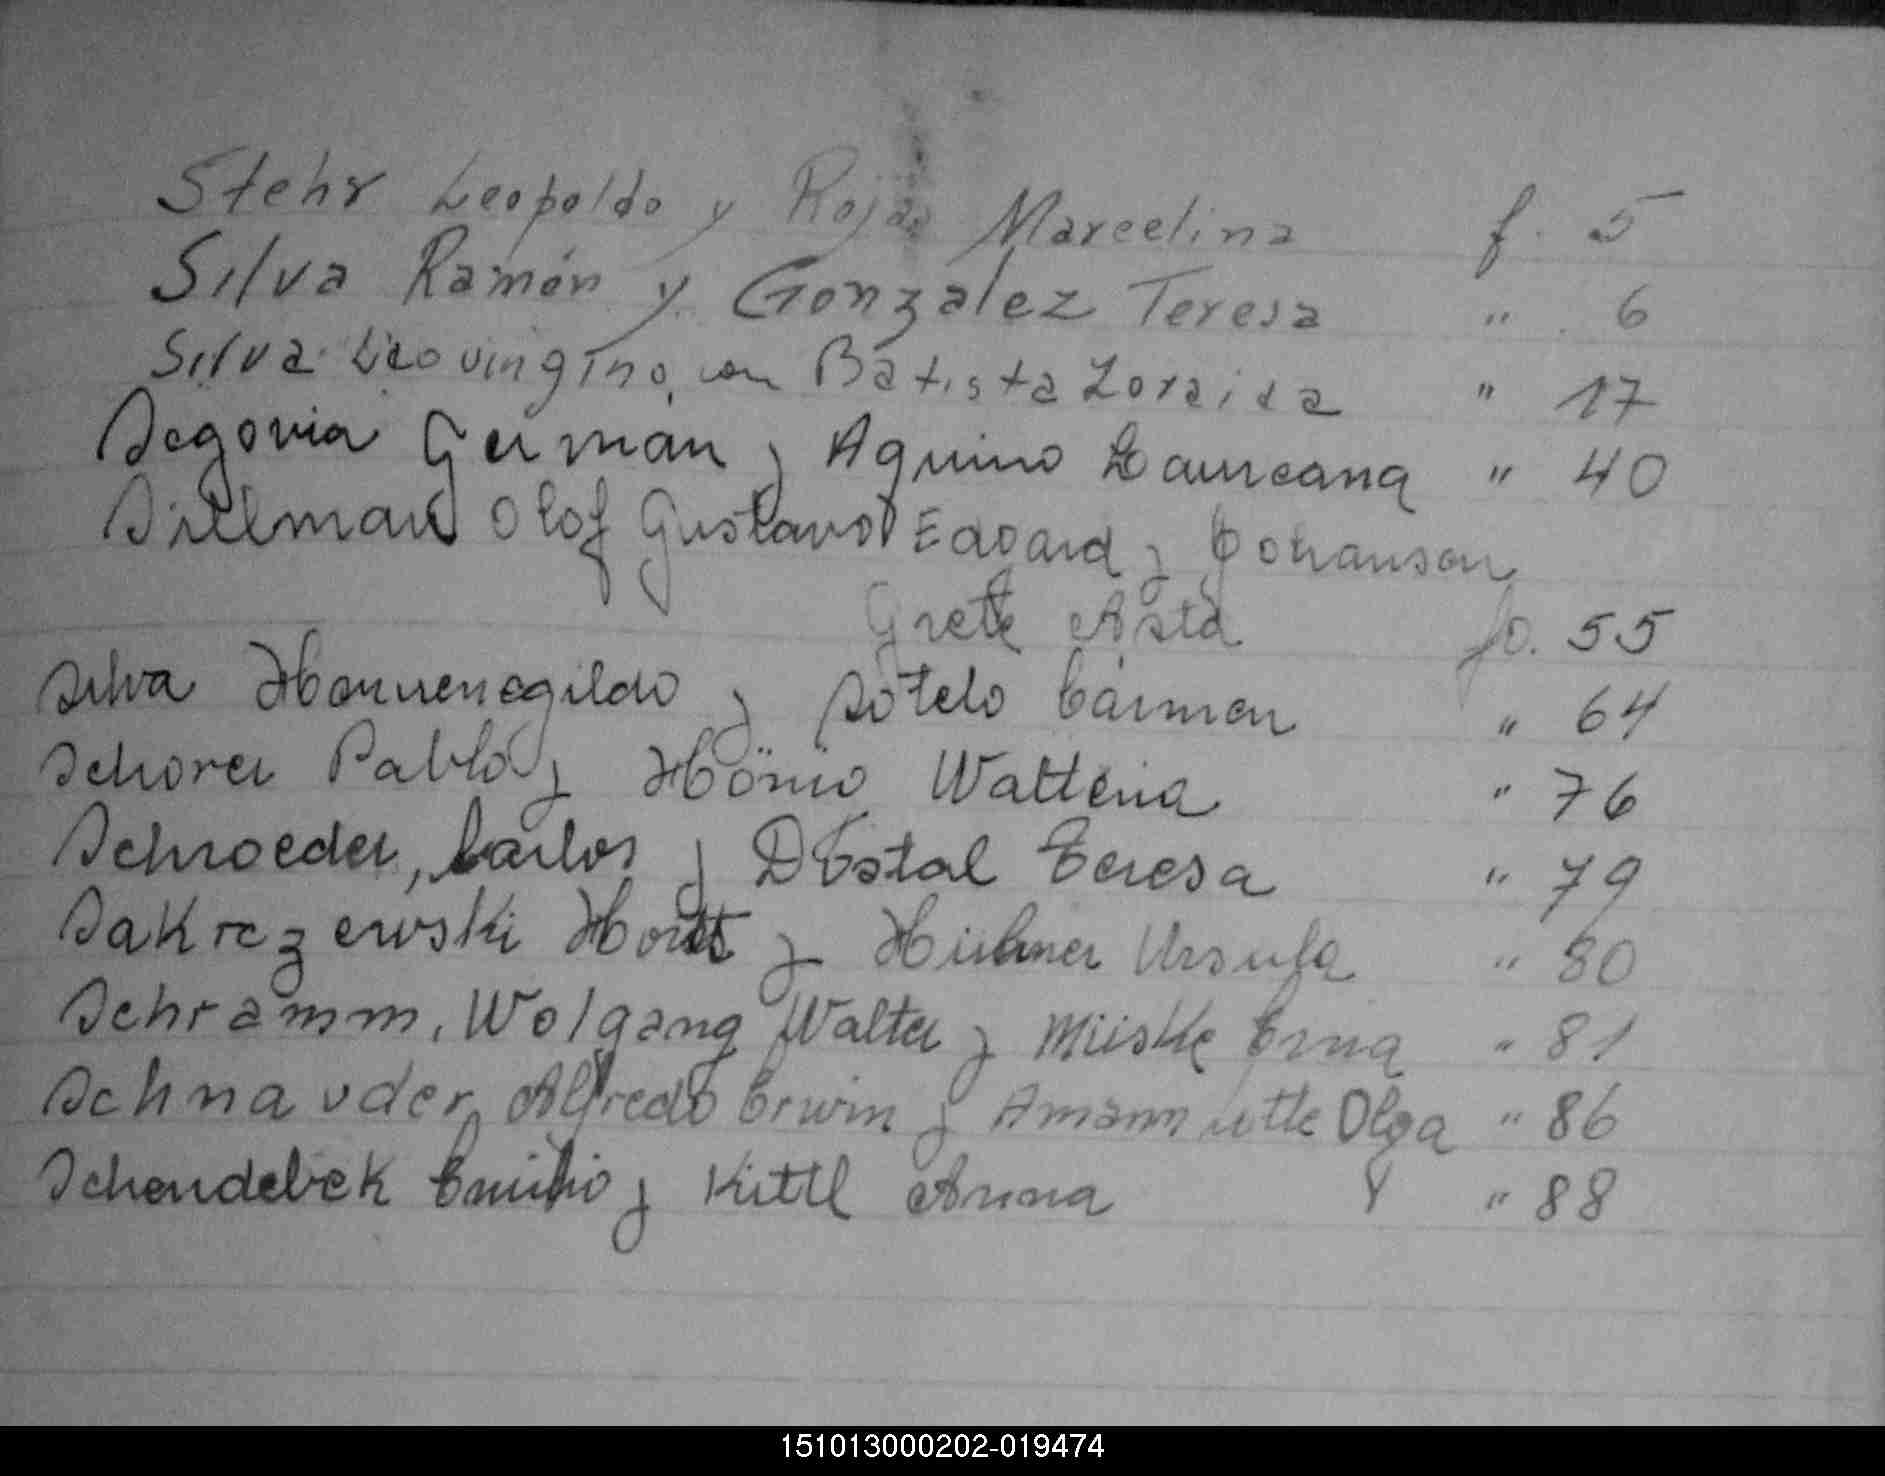 Stehr Leopoldo y Rojas Marcelina f. 5
Silva Ramón y Gonzalez Teresa " 6
Silva Leovingino, con Batista Zoraida " 17
Segovia Germán y Aquino Laureana " 40
Sillman Olof Gustavo Edoard y Johanson
Grete Asta fo. 55
Silva Hermenegildo y Sotelo Cármen " 64
Schorer Pablo y Waltena " 76
Schroeder, Carlos y Dostal Teresa " 79
Sakrczewski Horst y Hübner Ursula " 80
Schramm, Wolgang Walter y Müske Erna " 81
Schnauder, Alfredo Erwin y Amann Olga " 86
Schendebek Emilio y Kittl Anna " 88
151013000202-019474